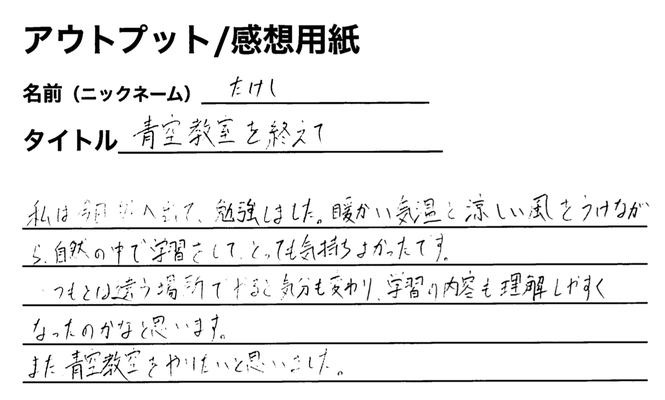 アウトプット/感想用紙
名前（ニックネーム） たけし
タイトル 青空教室を終えて
私は今日外へ出て、勉強しました。暖かい気温と涼しい風をうけなが
ら、自然の中で学習をして、とっても気持ちよかったです。
つもとは違う場所でやると気分も変わり、学習の内容も理解しやすく
なったのかなと思います。
また青空教室をやりたいと思いました。